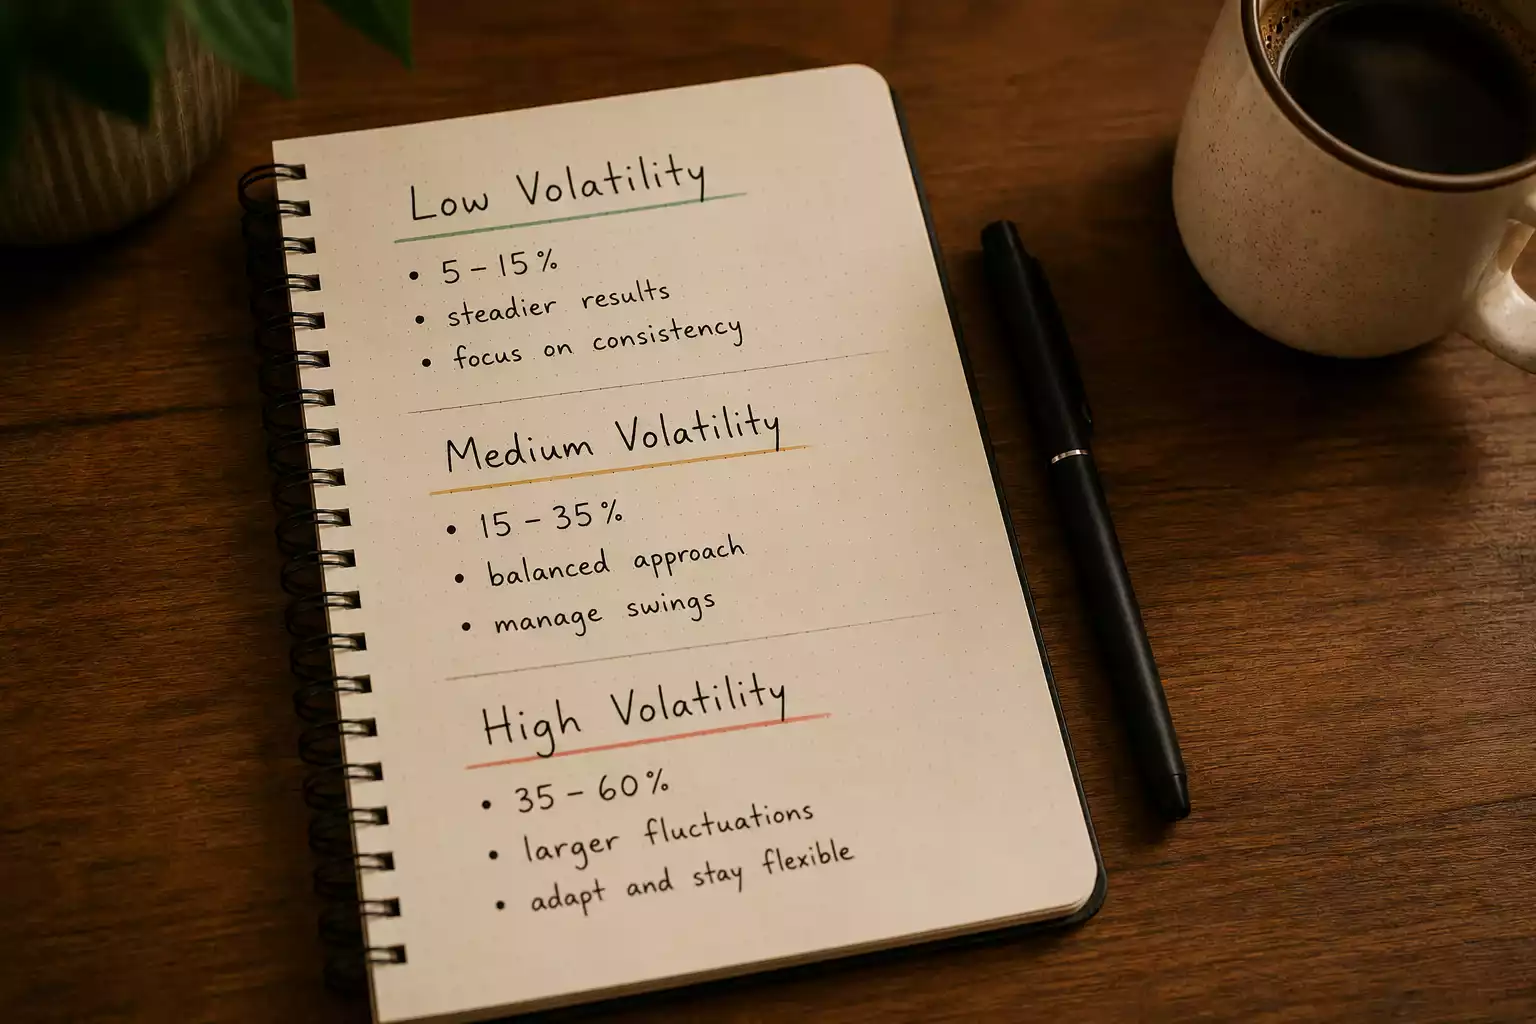 Low Volatility
• 5 – 15%
• steadier results
• focus on consistency
Medium Volatility
• 15 – 35%
• balanced approach
• manage swings
High Volatility
• 35 – 60%
• larger fluctuations
• adapt and stay flexible